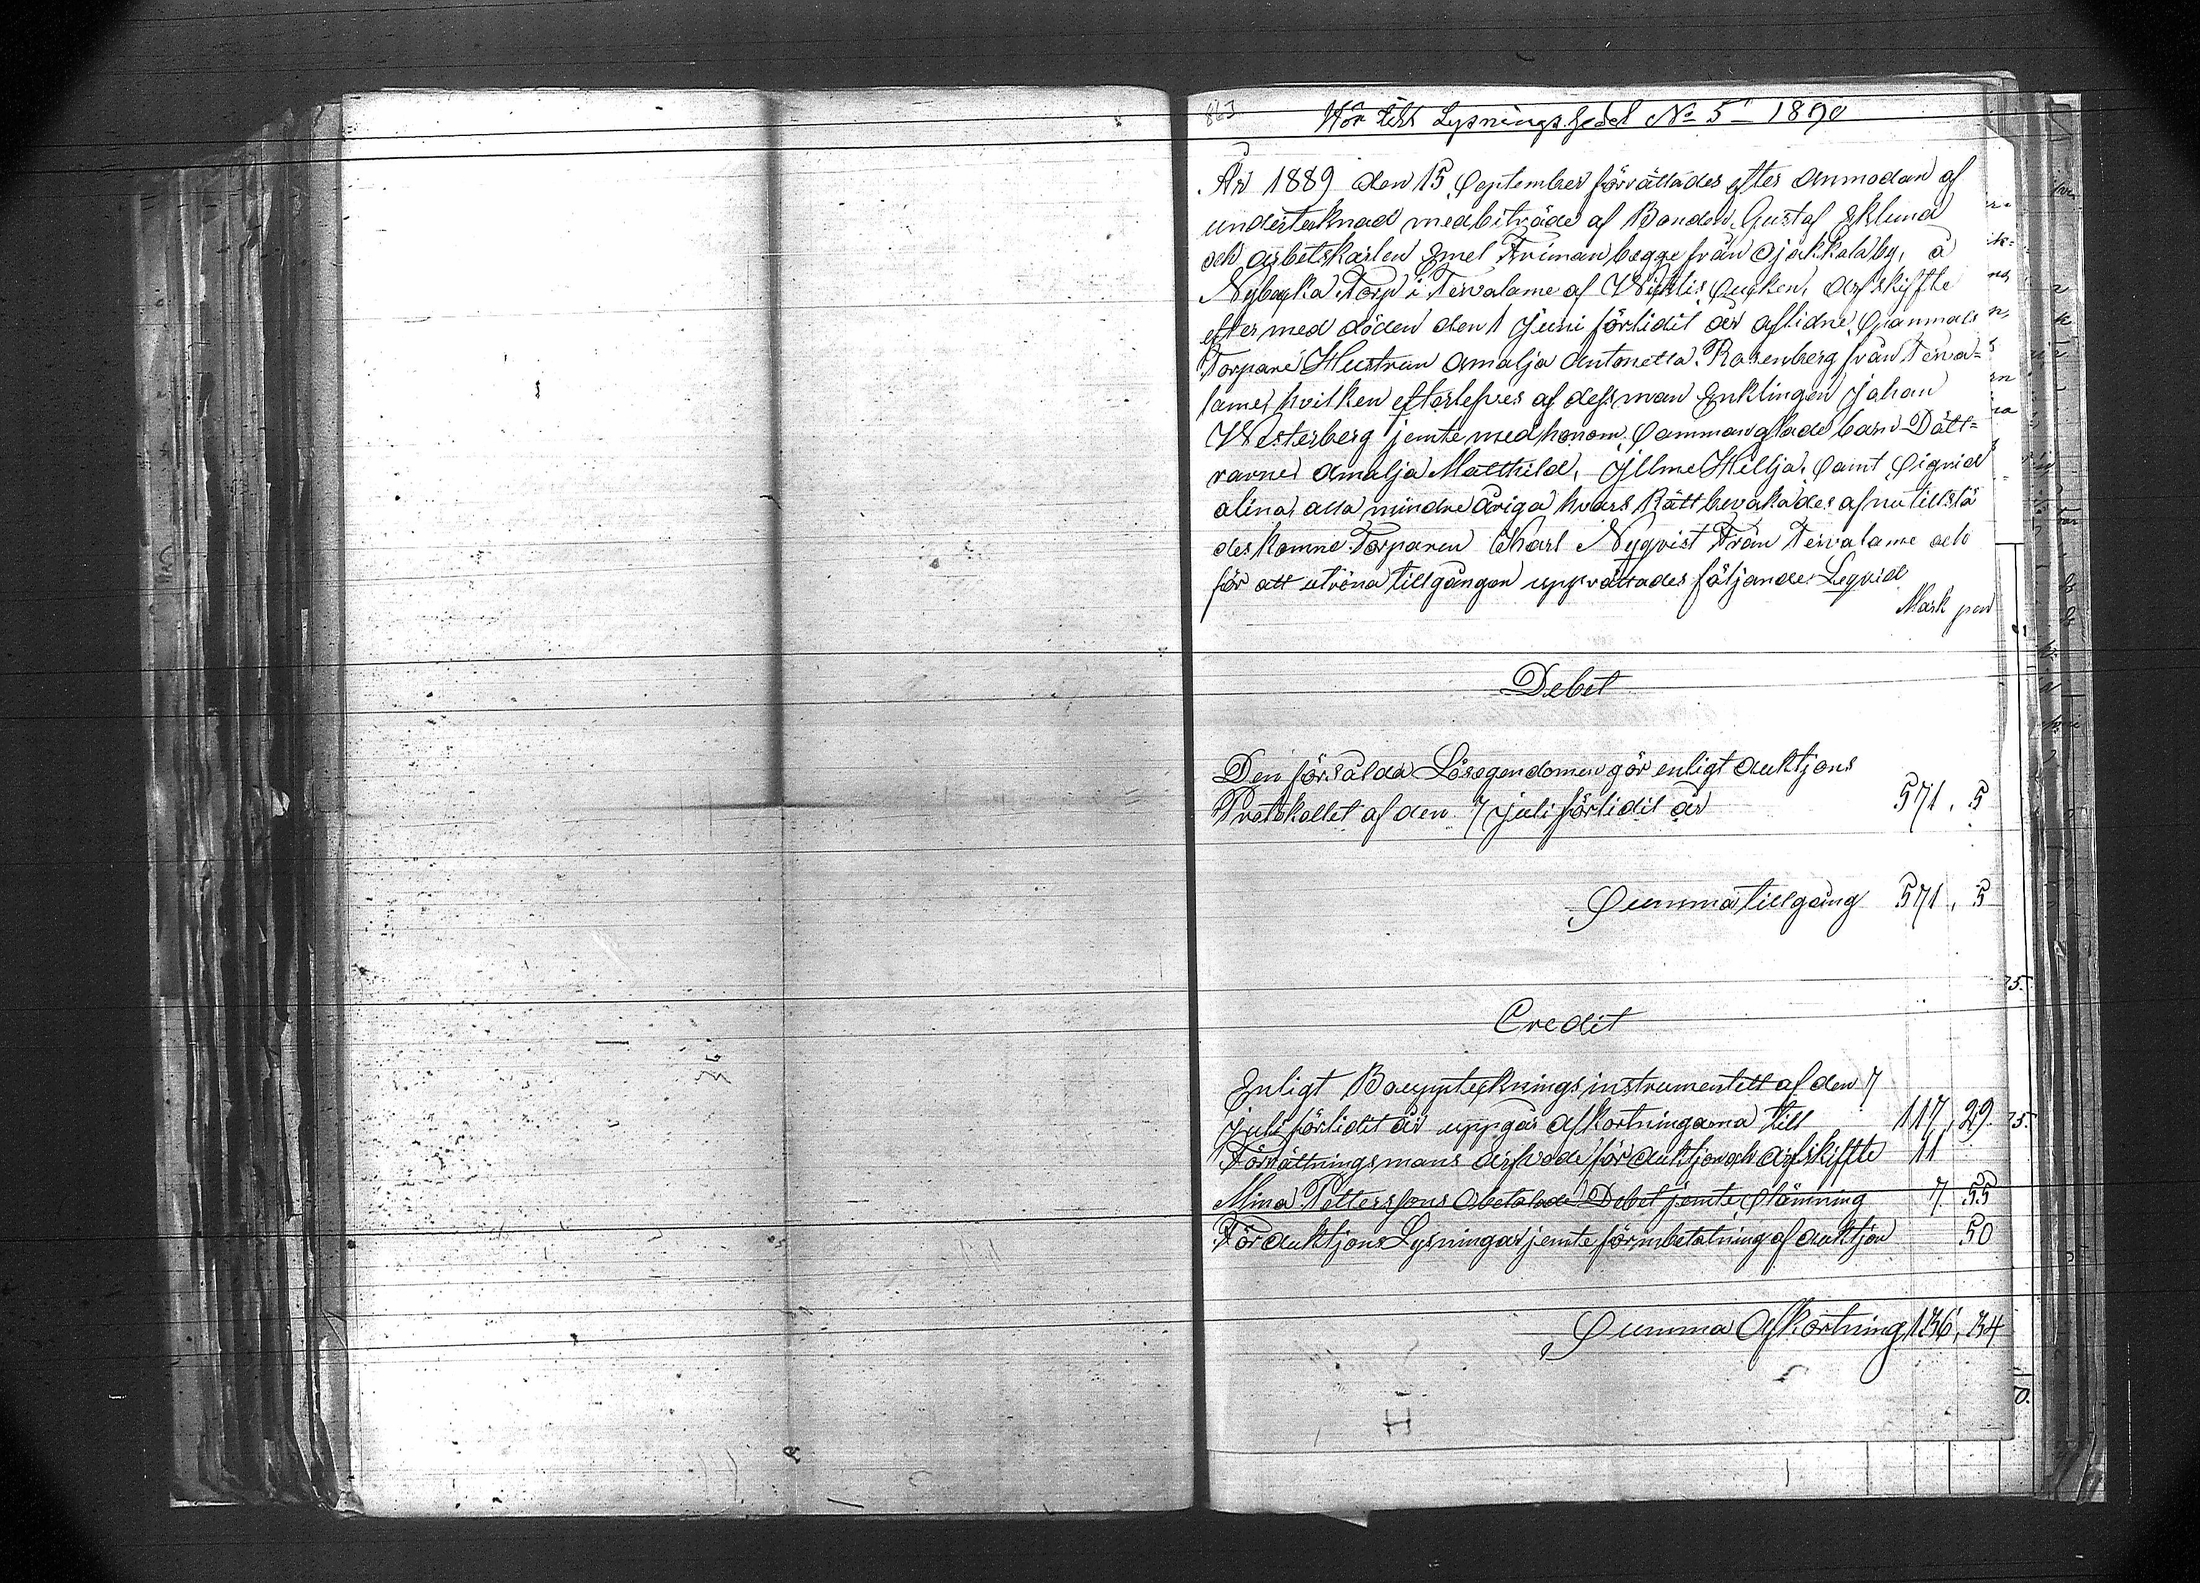 863
Hör till Lysnings Sedel No 5 1890
År 1889 den 15 September förrättades efter anmodan af
undertecknad med biträde af Bonden Gustaf Eklund
och arbetskarlen Emel Friman begge från Sjökkola by, å
Nybacka Torp i Tervalame af Wichtis Socken, arfskifte
efter med döden den 1 Juni förlidit år aflidne Spanmals
Torpare Hustrun Amalja Antonetta Rosenberg från Terva-
lame, hvilken efterlefves af dess man Enklingen Johan
Westerberg jemte med honom Sammanaflade barn Dött-
rarne Amalja Mathild, Jllme Hilja, Samt Sigrid
alina, alla minderåriga hvars Rätt bevakades af nu tillstä
des komne Torparen Karl Nyqvist Från Tervalame och
för att utröna tillgången upprättades följande Leqvid
Mark pen
Debet
Den försålda Lösegendomen gör enligt auktjons
Protokollet af den 7 juli förlidit år 571. 5
Summa tillgång 571. 5
Credit
Enligt Bouppteknings instrumentett af den 7
juli förlidit år uppgår afkortningarna till 117, 29.
Förrättningsmans arfvode för auktjon och arfskifte 11
Mina Petterssons obetalade Debet jemte Stämning 7 55
För auktjons Lysningar jemte förmbetalning af auktjon 50
Summa Afkortning 136, 34